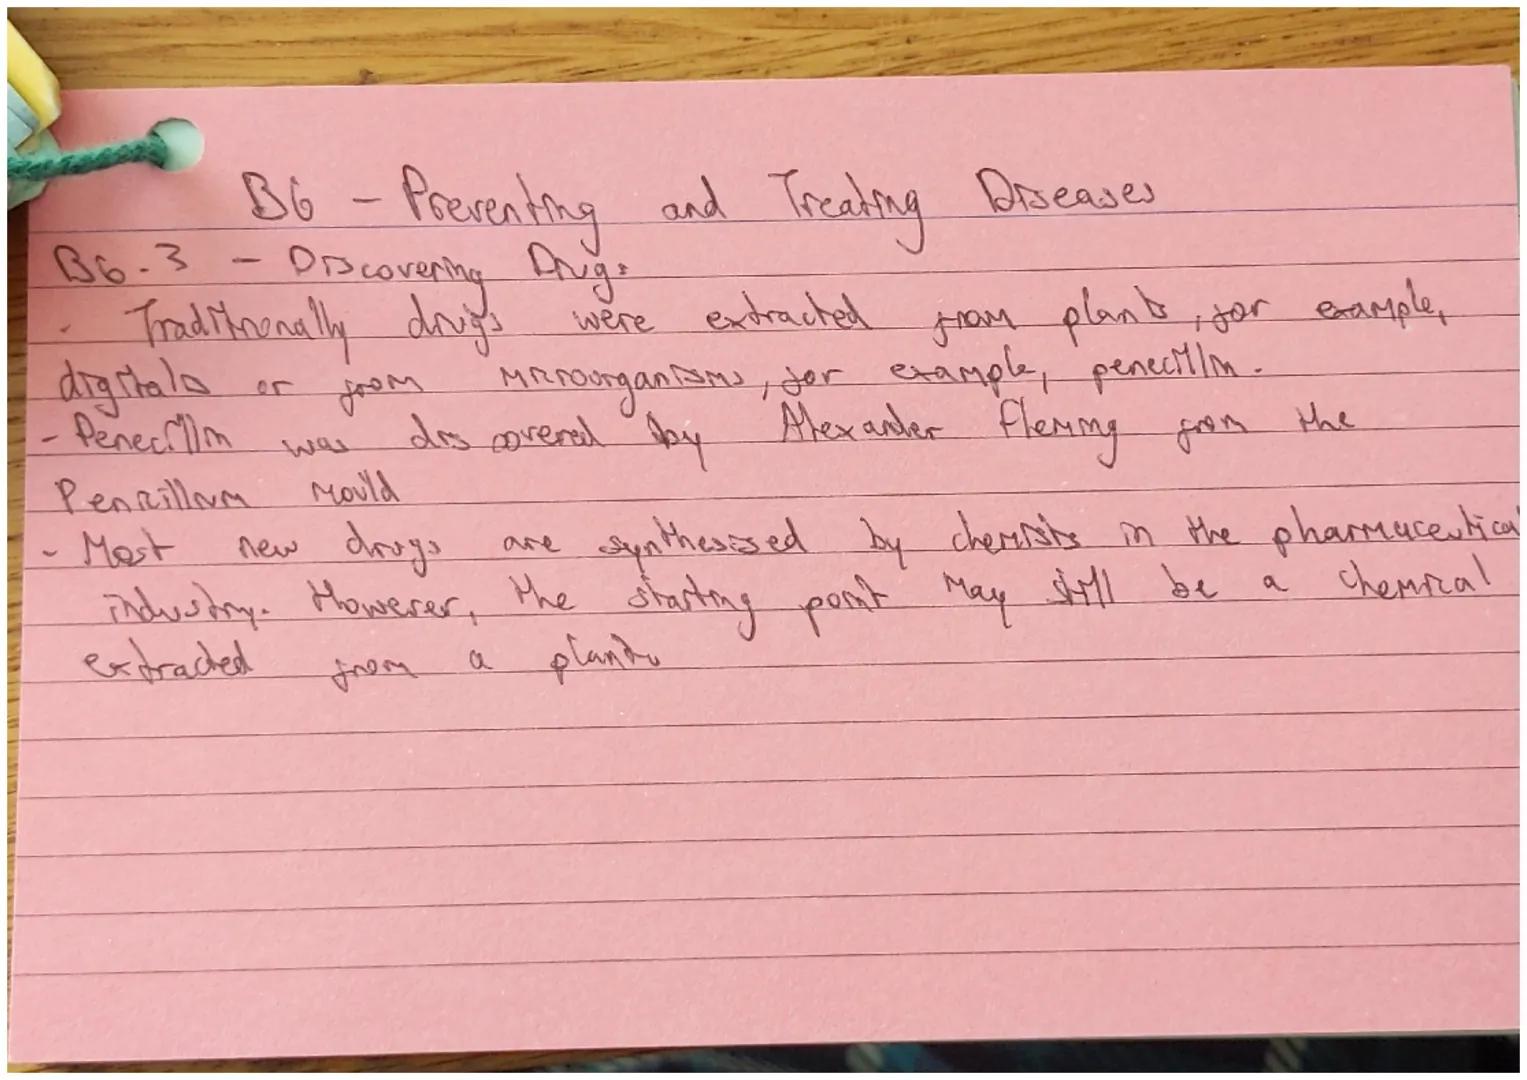 B6 - Preventing and Treating Diseases
B6.3 - Discovering Drugs
- Traditionally drugs were extracted from plants, for example,
digitalis or from microorganisms, for example, penecillin.
- Penecillin was discovered by Alexander Fleming from the
Penicillium mould
- Most new drugs are synthesised by chemists in the pharmaceutical
industry. However, the starting point may still be a chemical
extracted from a plant.